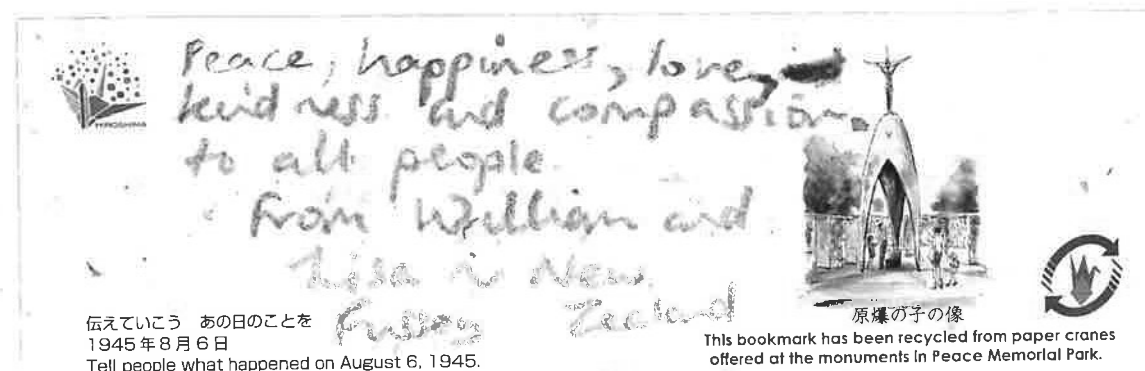 Peace, happiness, love,
kindness and compassion
to all people
From William and
Lisa in New
Zealand
HIROSHIMA
伝えていこう あの日のことを
1945年8月6日
Tell people what happened on August 6, 1945.
原爆の子の像
This bookmark has been recycled from paper cranes
offered at the monuments in Peace Memorial Park.